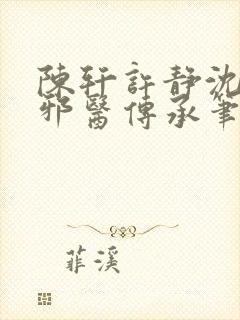 陳軒許靜沈
邪醫傳承筆
菲溪